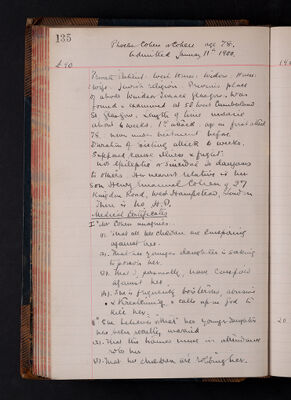 135
Phoebe Cohen or Cohen age 78.
Admitted January 11th 1900.
£40
Private Patient. West House. Widow. House
wife. Jewish religion. Previous place
of abode Windsor Terrace Glasgow. Was
found & examined at 58 West Cumberland
St Glasgow. Length of time insane
about 6 weeks. 1st attack age on first attack
78. never under treatment before.
Duration of existing attack 6 weeks.
Supposed cause illness & fright.
Not epileptic or suicidal is dangerous
to others. Her nearest relative is her
son Henry Cohen of 37
Road, West Hampstead, London
There is no H.P.
Medical Certificates
I Mrs Cohen imagines.
(1). That all her children are conspiring
against her.
(2). That her younger daughter is seeking
to poison her.
(3). That I, personally, have conspired
against her.
(4). She is frequently boisterous, abusive
& threatening, & calls upon God to
kill her.
II She believes "that" her younger daughter
has been recently married
(2). That this house nurse in attendance
robs her
(3). That her children are "robbing" her.
20